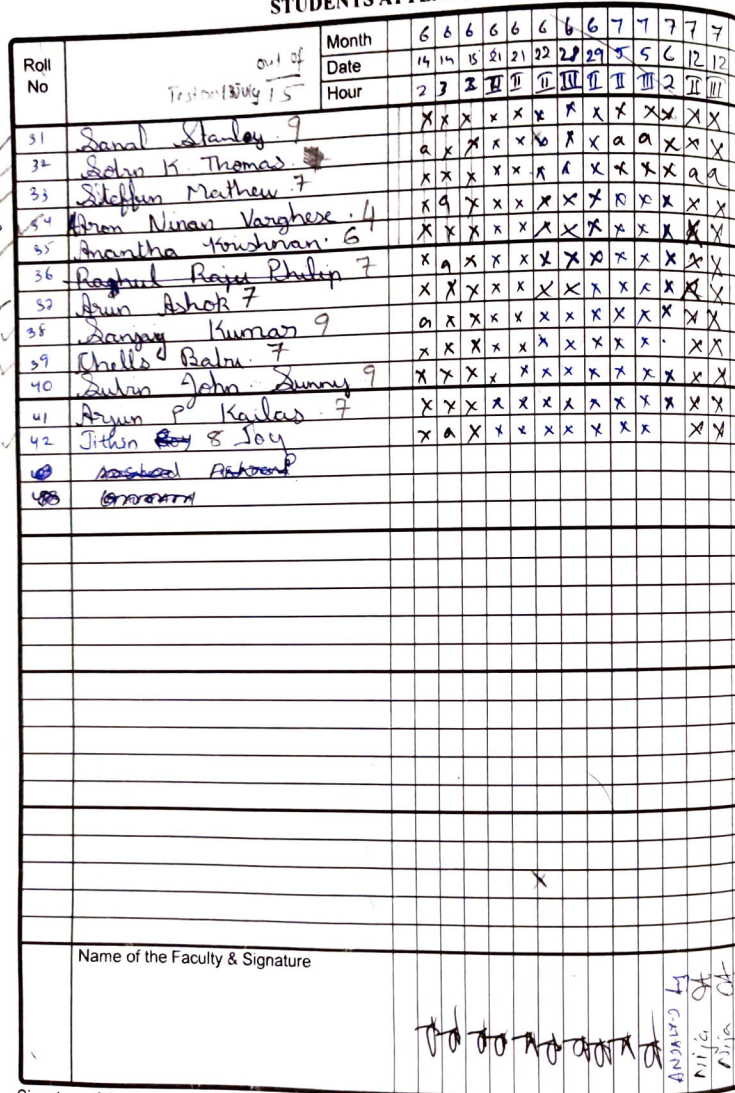 STUDENTS ATTE
Month 6 6 6 6 6 6 6 6 7 7 7 7 7
Roll No out of Date 14 14 15 21 21 22 28 29 5 5 6 12 12
Test on 13 July 15 Hour 2 3 II II II III II II III 2 II III
31 Sanal Stanley 9 x x x x x x x x x x x x x
32 K. Thomas a x x x x x x x a a x x x
33 Mathew . 7 x x x x x x x x x x x a a
34 Aron Ninan Varghese . 4 x a x x x x x x x x x x x
35 Anantha Krishnan . 6 x x x x x x x x x x x x x
36 Raghul Raju Philip 7 x a x x x x x x x x x x x
37 Arun Ashok 7 x x x x x x x x x x x x x
38 Sanjay Kumar 9 a x x x x x x x x x x x x
39 7 x x x x x x x x x x . x x
40 Subin John Sunny 9 x x x x x x x x x x x x x
41 Arjun P Kailas . 7 x x x x x x x x x x x x x
42 Jithin 8 Joy x a x x x x x x x x x x
x
Name of the Faculty & Signature
Nija
Nija